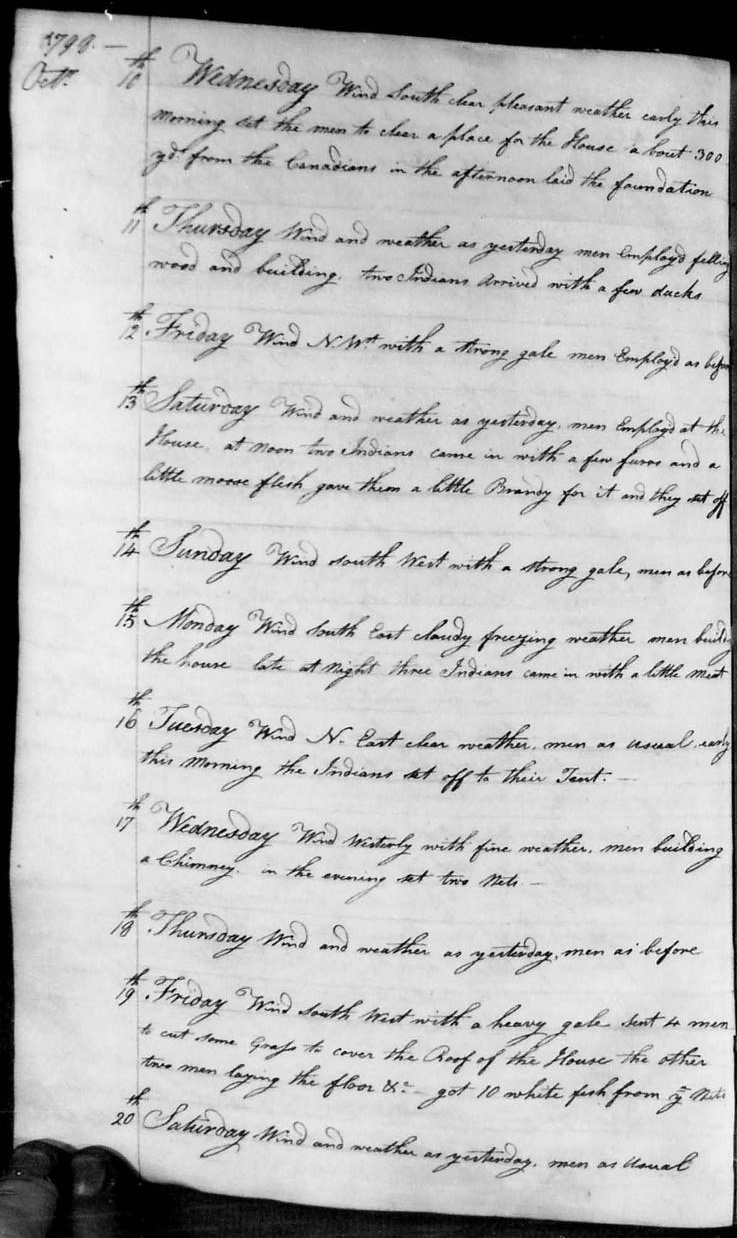 1798. —
Octr. 10th Wednesday Wind South clear pleasant weather early this
Morning set the men to clear a place for the House a bout 300
yds. from the Canadians in the afternoon laid the foundation
11th Thursday Wind and weather as yesterday men Employd felling
wood and building. two Indians Arrived with a few ducks
12th Friday Wind N. Wt. with a strong gale men Employd as before
13th Saturday Wind and weather as yesterday, men Employd at the
House, at Noon two Indians came in with a few furrs and a
little moose flesh gave them a little Brandy for it and they set off
14th Sunday Wind South West with a strong gale, men as before
15th Monday Wind South East cloudy freezing weather men building
the house late at Night three Indians came in with a little Meat
16th Tuesday Wind N. East clear weather, men as usual. early
this Morning the Indians set off to their Tent. —
17th Wednesday Wind Westerly with fine weather, men building
a Chimney. in the evening set two Nets. —
18th Thursday Wind and weather as yesterday, men as before
19th Friday Wind South West with a heavy gale Sent 4 men
to cut some Grass to cover the Roof of the House the other
two men laying the floor &c. — got 10 white fish from ye Nets
20th Saturday Wind and weather as yesterday, men as Usual